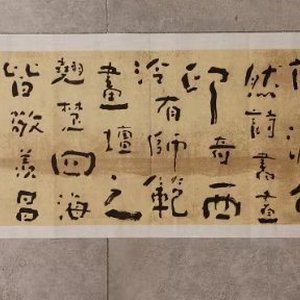 然詩書畫
印奇西
泠有師範
畫壇之
翹楚四海
皆敬羨昌